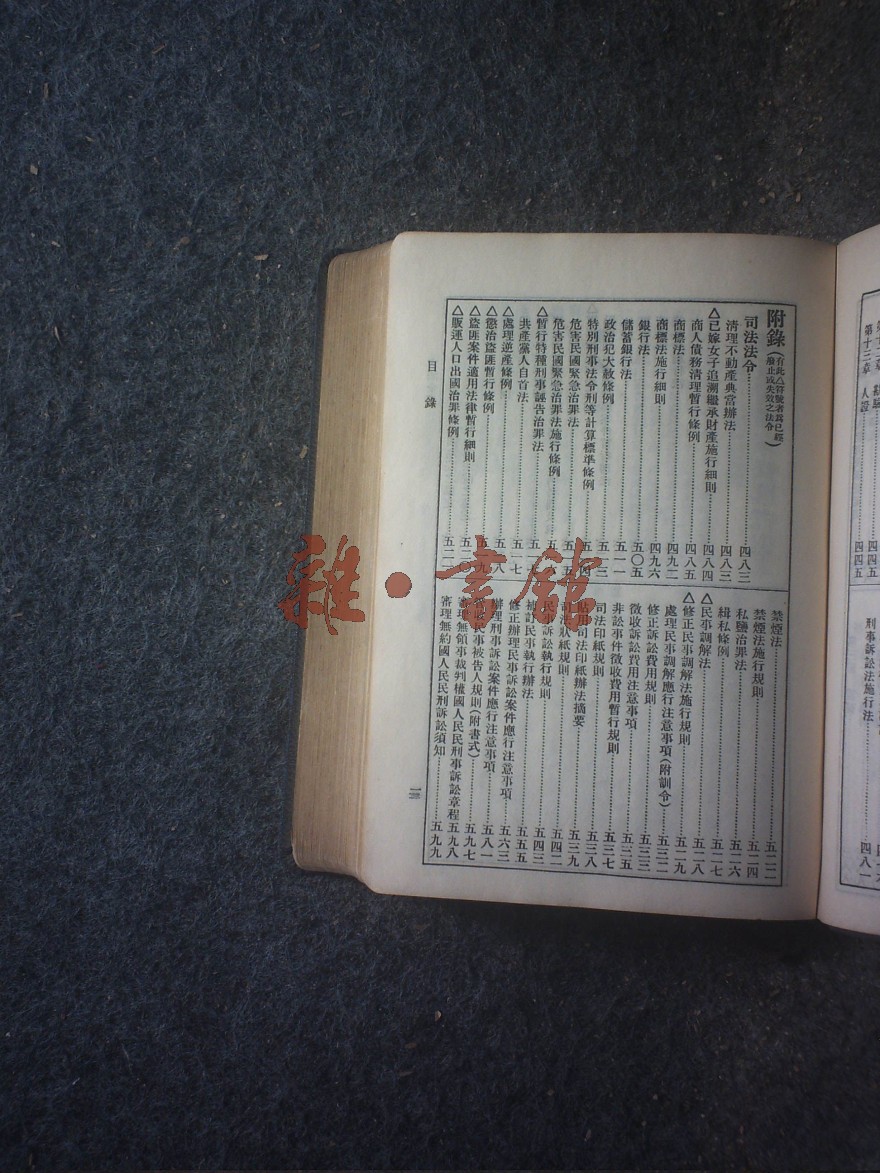 附錄(有此△符號者為已經廢止或失效之法令)
司法法令……四八三
清理不動產典當辦法……四八三
△已嫁女子追溯繼承財產施行細則……四八四
商人債務清理暫行條例……四八五
商標法……四九二
商標法施行細則……四九六
銀行法……五〇五
儲蓄銀行法……五一一
政治犯大赦條例……五一三
特別刑事法令刑等計算標準條例
危害民國緊急治罪法
危害民國緊急治罪法施行條例
△暫行特種刑事誣告治罪法
共產黨人自首法……五一七
△處理逆產條例……五一八
△懲治盜匪暫行條例
△盜匪案件適用法律暫行細則
△販運人口出國治罪條例
禁煙法……五二二
禁煙法施行規則……五二四
私鹽治罪法……五二六
緝私條例……五二七
△民事調解法……五二八
△修正民事調解法施行規則……五二九
處理民事調解應行注意事項(附訓令)……五三二
修正訴訟費用規則……五三三
徵收訴訟費用注意事項……五三五
非訟事件徵收費用暫行規則……五三七
司法印紙規則……五三八
貼用司法印紙辦法摘要……五三九
司法狀紙規則……五四二
民事訴訟執行規則……五四三
補訂民事執行辦法……五五五
修正辦理民事訴訟案件應行注意事項……五六三
辦理刑事訴訟案件應行注意事項……五八一
管收民事被告人規則(附書式)……五九七
審理無領事裁判權國人民民刑事訴訟章程……五九八
審理無約國人民民刑訴訟須知……五九九
目錄
一三
第十三章
四四五
刑事訴訟法施行法
四八一
雜·書館